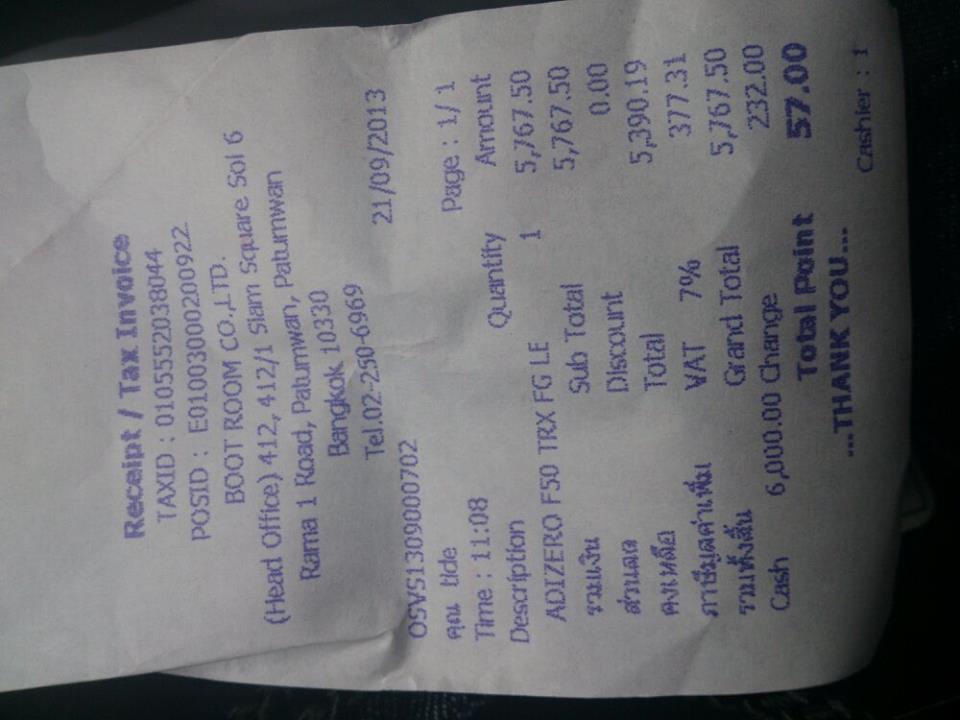 Receipt / Tax Invoice
TAXID : 0105552038044
POSID : E01003000200922
BOOT ROOM CO.,LTD.
(Head Office) 412, 412/1 Siam Square Soi 6
Rama 1 Road, Patumwan, Patumwan
Bangkok 10330
Tel.02-250-6969
OSVS1309000702 21/09/2013
คุณ tide
Time : 11:08 Page : 1/ 1
Description Quantity Amount
ADIZERO F50 TRX FG LE 1 5,767.50
รวมเงิน Sub Total 5,767.50
ส่วนลด Discount 0.00
คงเหลือ Total 5,390.19
ภาษีมูลค่าเพิ่ม VAT 7% 377.31
รวมทั้งสิ้น Grand Total 5,767.50
Cash 6,000.00 Change 232.00
Total Point 57.00
...THANK YOU...
Cashier : 1